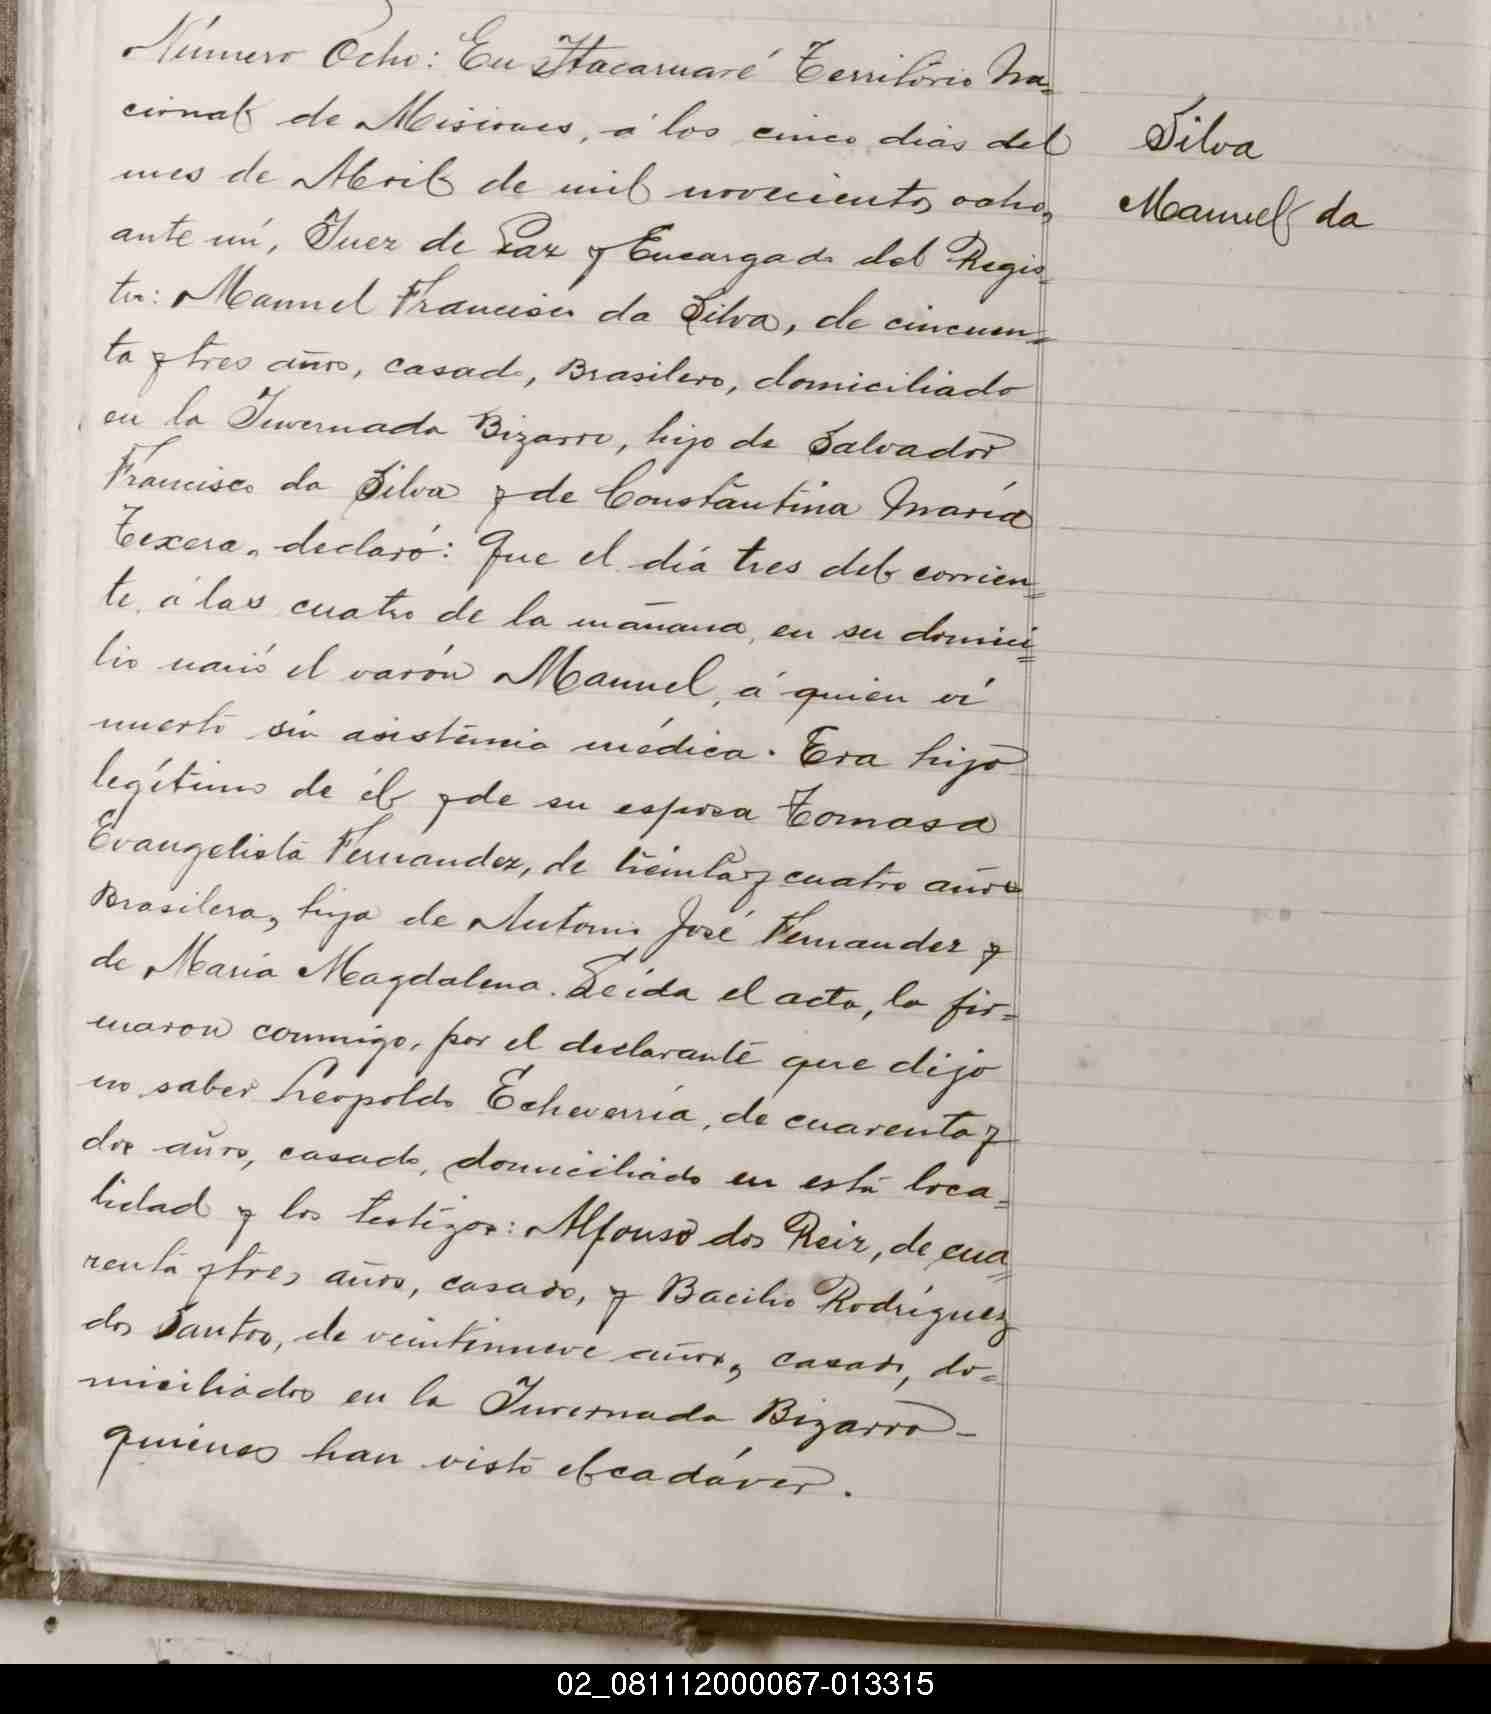 Número Ocho: En Itacaruaré Território Na=
cional de Misiones, á los cinco dias del
mes de Abril de mil novecientos ocho,
ante mi, Juez de Paz y Encargado del Regis=
tro: Manuel Francisco da Silva, de cincuen=
ta y tres años, casado, Brasilero, domiciliado
en la Invernada Bizarro, hijo de Salvador
Francisco da Silva y de Constantina María
Texera, declaró: Que el día tres del corrien=
te, á las cuatro de la mañana, en su domici=
lio nació el varón Manuel, á quien ví
muerto sin asistencia médica. Era hijo
legítimo de él y de su esposa Tomasa
Evangelista Fernandez, de treinta y cuatro años
Brasilera, hija de Antonio José Fernandez y
de Maria Magdalena. Leída el acta, la fir=
maron conmigo, por el declarante que dijo
no saber Leopoldo Echeverría, de cuarenta y
dos años, casado, domiciliado en está loca=
lidad y los testigos: Alfonso dos Reiz, de cua=
renta y tres años, casado, y Bacilio Rodríguez
dos Santos, de veintinueve años, casado, do=
miciliados en la Invernada Bizarro-
quienes han visto el cadáver.
Silva
Manuel da
02_081112000067-013315